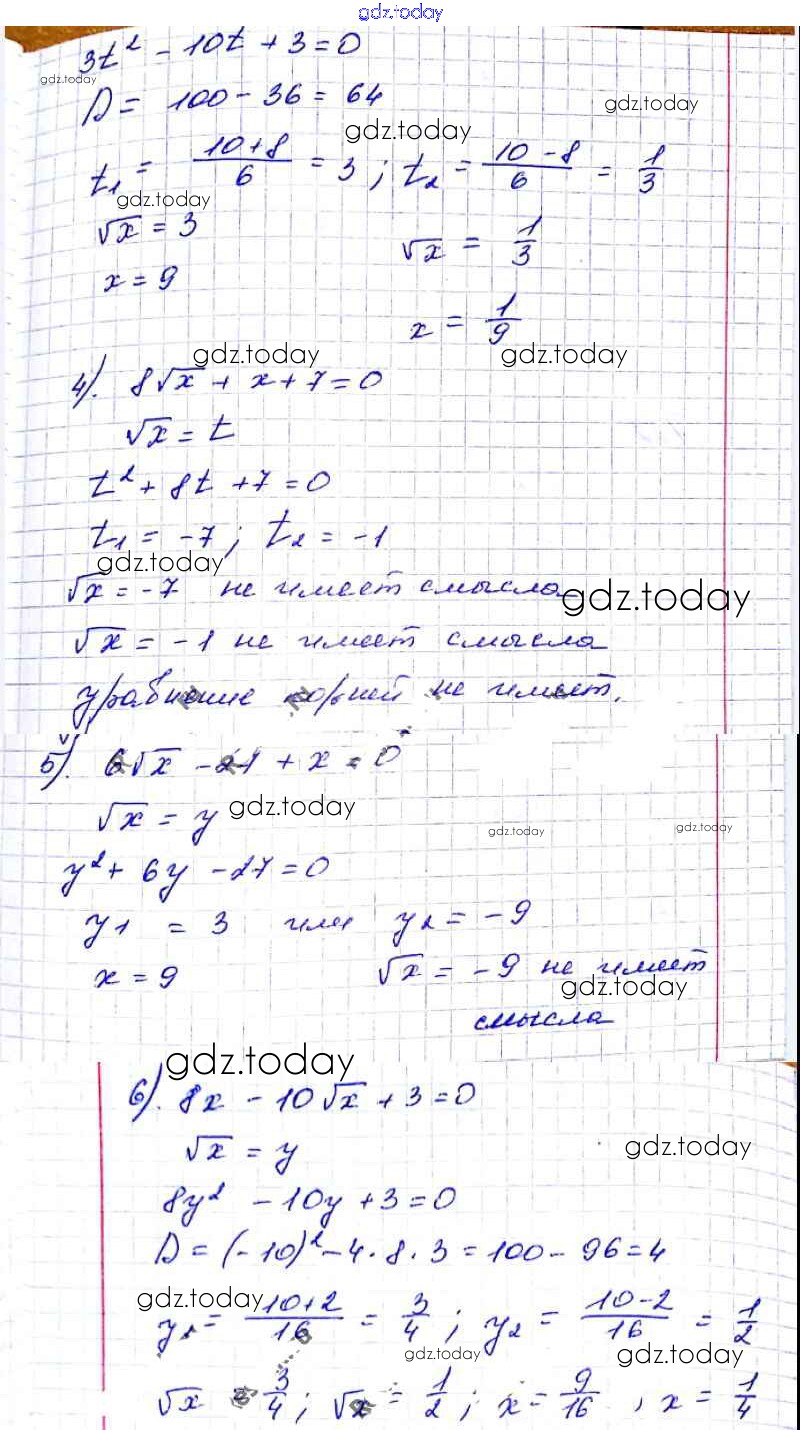 gdz.today
3t² - 10t + 3 = 0
gdz.today
D = 100 - 36 = 64
gdz.today
gdz.today
t₁ = (10+8)/6 = 3 ; t₂ = (10-8)/6 = 1/3
gdz.today
√x = 3 √x = 1/3
x = 9 x = 1/9
gdz.today gdz.today
4). 8√x + x + 7 = 0
√x = t
t² + 8t + 7 = 0
t₁ = -7 ; t₂ = -1
gdz.today
√x = -7 не имеет смысла
gdz.today
√x = -1 не имеет смысла
уравнение корней не имеет.
5). 6√x - 27 + x = 0
√x = y gdz.today
gdz.today gdz.today
y² + 6y - 27 = 0
y₁ = 3 или y₂ = -9
x = 9 √x = -9 не имеет
gdz.today
смысла
gdz.today
6). 8x - 10√x + 3 = 0
√x = y
gdz.today
8y² - 10y + 3 = 0
D = (-10)² - 4·8·3 = 100 - 96 = 4
gdz.today
y₁ = (10+2)/16 = 3/4 ; y₂ = (10-2)/16 = 1/2
gdz.today gdz.today
√x = 3/4 ; √x = 1/2 ; x = 9/16 , x = 1/4